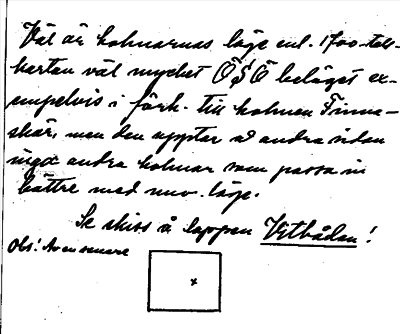 Väl är holmarnas läge enl. 1700-tals-
kartan väl mycket ÖSÖ beläget ex-
empelvis i förh. till holmen Finna-
skär, men den upptar å andra sidan
inga andra holmar som passa in
bättre med nuv. läge.
Se skiss å lappen Vitbådan!
Obs!